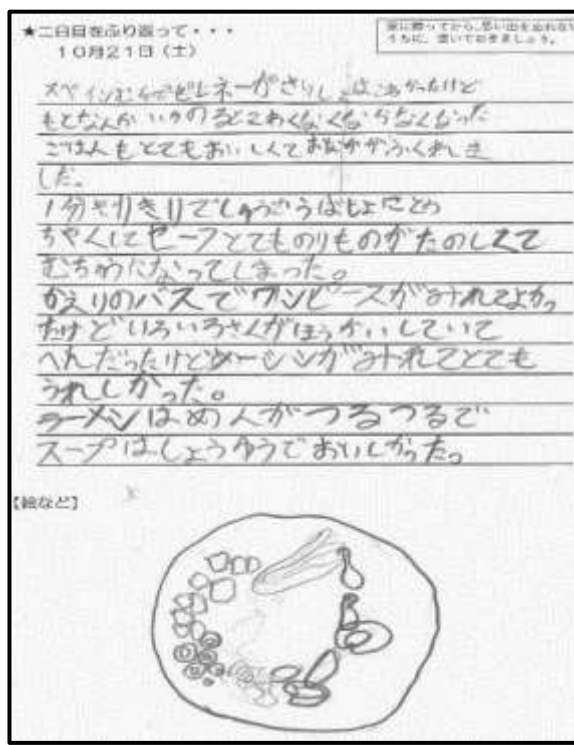 ★二日目をふり返って・・・
10月21日(土)
家に帰ってから、思い出を忘れない
うちに、書いておきましょう。
スペインむらでピレネーがさいしょはこわかったけど
もとなんかいかのるとこわくなくなった
ごはんもとてもおいしくておなかがふくれました。
1分ぎりぎりでしゅうごうばしょにとう
ちゃくしてセーフとてものりものがたのしくて
むちゅうになってしまった。
かえりのバスでワンピースがみれてよかっ
たけどいろいろさくがほうかいしていて
へんだったけどメーンシンがみれてとても
うれしかった。
ラーメンはめんがつるつるで
スープはしょうゆうでおいしかった。
【絵など】